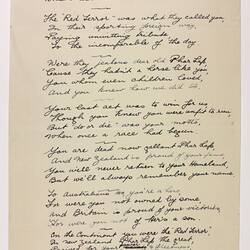 "The Red Terror" was what they called you
In their sporting foreign way,
Paying unwitting tribute
To the incomparable of the day
Were they jealous dear old Phar Lap,
'Cause they hadn't a horse like you
You whom each children loved,
And you knew how we did it.
Your last act was to win for us
Though you knew you were unfit to run
But "do or die" was your motto,
When once a race had begun.
You are dead now gallant Phar Lap,
And New Zealand is proud of your name
You will never return to your Homeland,
But we'll always remember your name
To Australians you're a hero,
For were you not owned by some,
And Britain is proud of your victories,
For were you not of hers a son
On the Continent you were the Red Terror
In New Zealand Phar Lap the great,